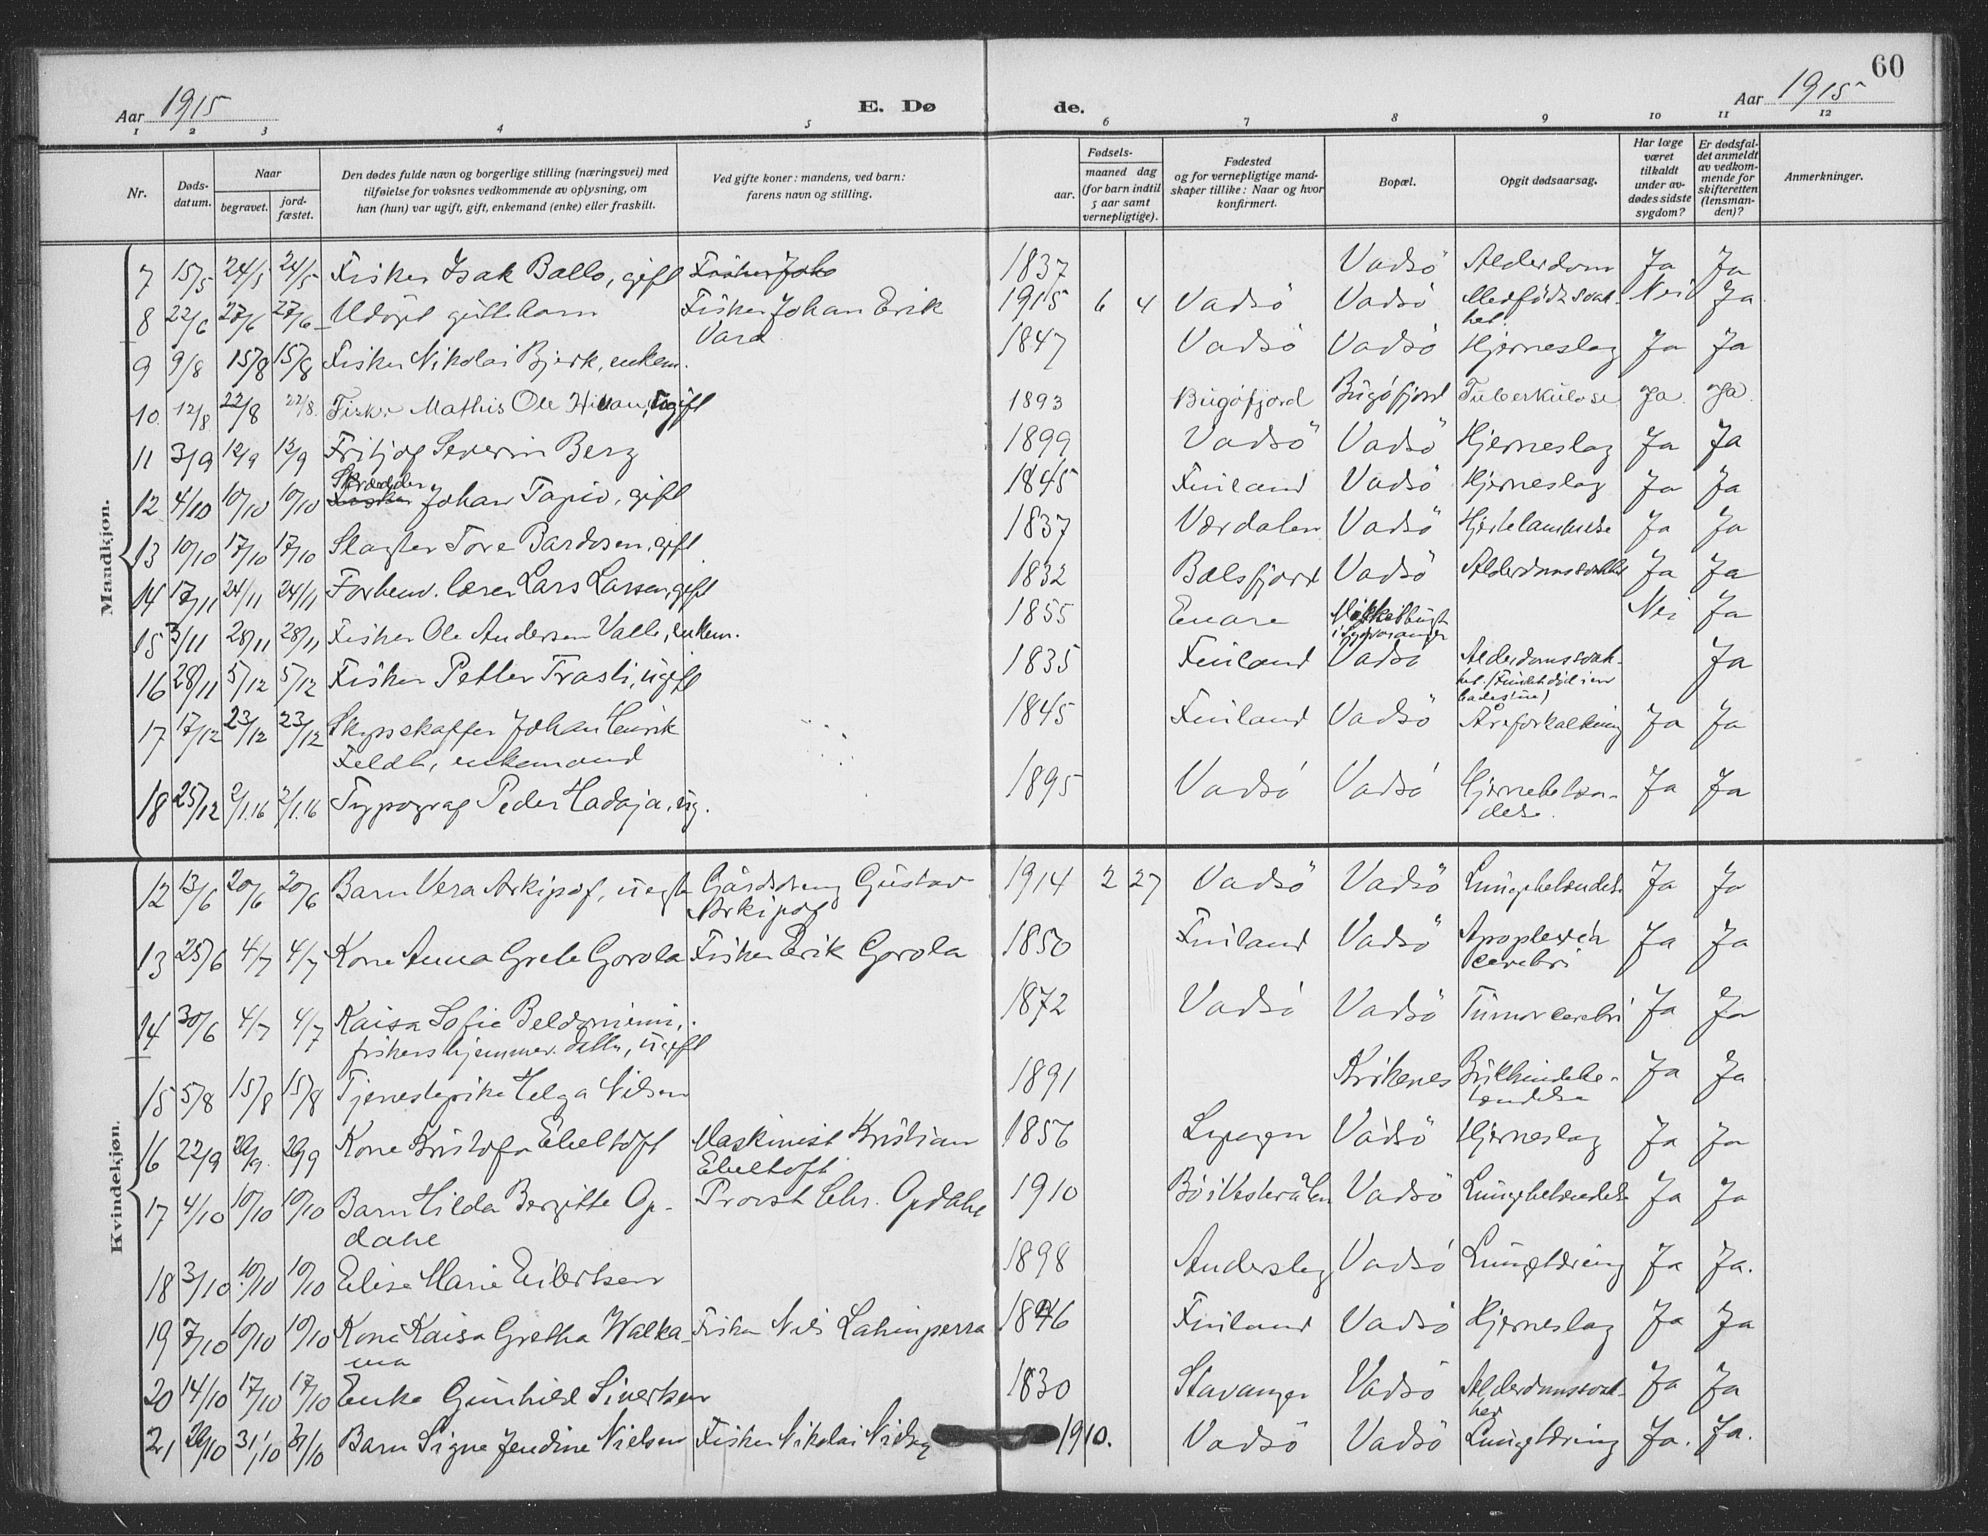 60
Aar 1915
E. Dø
de.
Aar 1915
1 2 3 4 5 6 7 8 9 10 11 12
Nr.
Døds-
datum.
Naar
begravet.
jord-
fæstet.
Den dødes fulde navn og borgerlige stilling (næringsvei) med
tilføielse for voksnes vedkommende av oplysning, om
han (hun) var ugift, gift, enkemand (enke) eller fraskilt.
Ved gifte koner: mandens, ved barn:
farens navn og stilling.
Fødsels-
aar.
maaned dag
(for barn indtil
5 aar samt
vernepligtige).
Fødested
og for vernepligtige mand-
skaper tillike: Naar og hvor
konfirmert.
Bopæl.
Opgit dødsaarsag.
Har læge
været
tilkaldt
under av-
dødes sidste
sygdom?
Er dødsfal-
det anmeldt
av vedkom-
mende for
skifteretten
(lensman-
den)?
Anmerkninger.
Mandkjøn.
7 15/5 24/5 24/5 Fisker Isak Ballo, gift Fisker Joh 1837 Vadsö Alderdom Ja Ja
8 22/6 27/6 27/6 Udöpt guttebarn Fisker Johan Erik 1915 6 4 Vadsö Vadsö Medfödt svak- Nei Ja
Vara het.
9 9/8 15/8 15/8 Fisker Nikolai Bjerk, enkem. 1847 Vadsö Vadsö Hjerneslag Ja Ja
10. 12/8 22/8 22/8. Fisker Mathis Ole ugift 1893 Bugöfjord Bugöfjord Tuberkulose Ja. Ja.
11 3/9 12/9 12/9 Fritjof Severin Berg 1899 Vadsö Vadsö Hjerneslag Ja Ja
Skrædder
12 4/10 10/10 10/10 Fisker Johan Tapio, gift 1845 Finland Vadsö Hjerneslag Ja Ja
13 10/10 17/10 17/10 Slagter Tore Bardosen, gift 1837 Værdalen Vadsö Hjertelammelse Ja Ja
14 17/11 24/11 24/11 Forhenv. lærer Lars Larsen, gift 1832 Balsfjord Vadsö Alderdomssvakhet Ja Ja
15 3/11 28/11 28/11 Fisker Ole Andersen Valle, enkem. 1855 Enare Nei Ja
16 28/11 5/12 5/12 Fisker Petter Trasti, ugift 1835 Finland Vadsö Alderdomssvak- Ja
het. (Fundet död i en
badstue)
17 17/12 23/12 23/12 Skysskaffer Johan Henrik 1845 Finland Vadsö Åreforkalkning Ja Ja
Feldt, enkemand
18 25/12 2/1.16 2/1.16 Typograf Peder Hadaja, ug. 1895 Vadsö Vadsö Hjernebetæn- Ja Ja
delse.
Kvindekjøn.
12 13/6 20/6 20/6 Barn Vera Arkipof, uegte Gårdsdreng Gustav 1914 2 27 Vadsö Vadsö Lungebetændelse Ja Ja
Arkipof
13 25/6 4/7 4/7 Kone Anna Grete Gorola Fisker Erik Gorola 1850 Finland Vadsö Apoplexia Ja Ja
cerebri
14 30/6 4/7 4/7 Kaisa Sofie Beldoniemi, 1872 Vadsö Vadsö Tumor cerebri Ja Ja
fiskers hjemmev. datter, ugift
15 5/8 15/8 15/8 Tjenestepike Helga Nilsen 1891 Kirkenes Bukhindebe- Ja Ja
tændelse
16 22/9 29/9 Kone Kristofa Ebeltoft Maskinist Kristian 1856 Lyngen Vadsö Hjerneslag Ja Ja
Ebeltoft
17 4/10 10/10 10/10 Barn Hilda Bergitte Op- Provst Chr. Opdahl 1910 Bö i Vesterålen Vadsö Lungebetændelse Ja Ja
dahl
18 3/10 10/10 10/10 Elise Marie Eilertsen 1898 Andersby Vadsö Lungetæring Ja Ja.
19 7/10 10/10 10/10 Kone Kaisa Gretha Walka- Fisker Nils Lahinperra 1846 Finland Vadsö Hjerneslag Ja Ja
ma
20 14/10 17/10 17/10 Enke Gunhild Sivertsen 1830 Stavanger Vadsö Alderdomssvak- Ja Ja
het
21 26/10 31/10 31/10 Barn Signe Jendine Nielsen Fisker Nikolai Nielsen 1910. Vadsö Vadsö Lungetæring Ja. Ja.